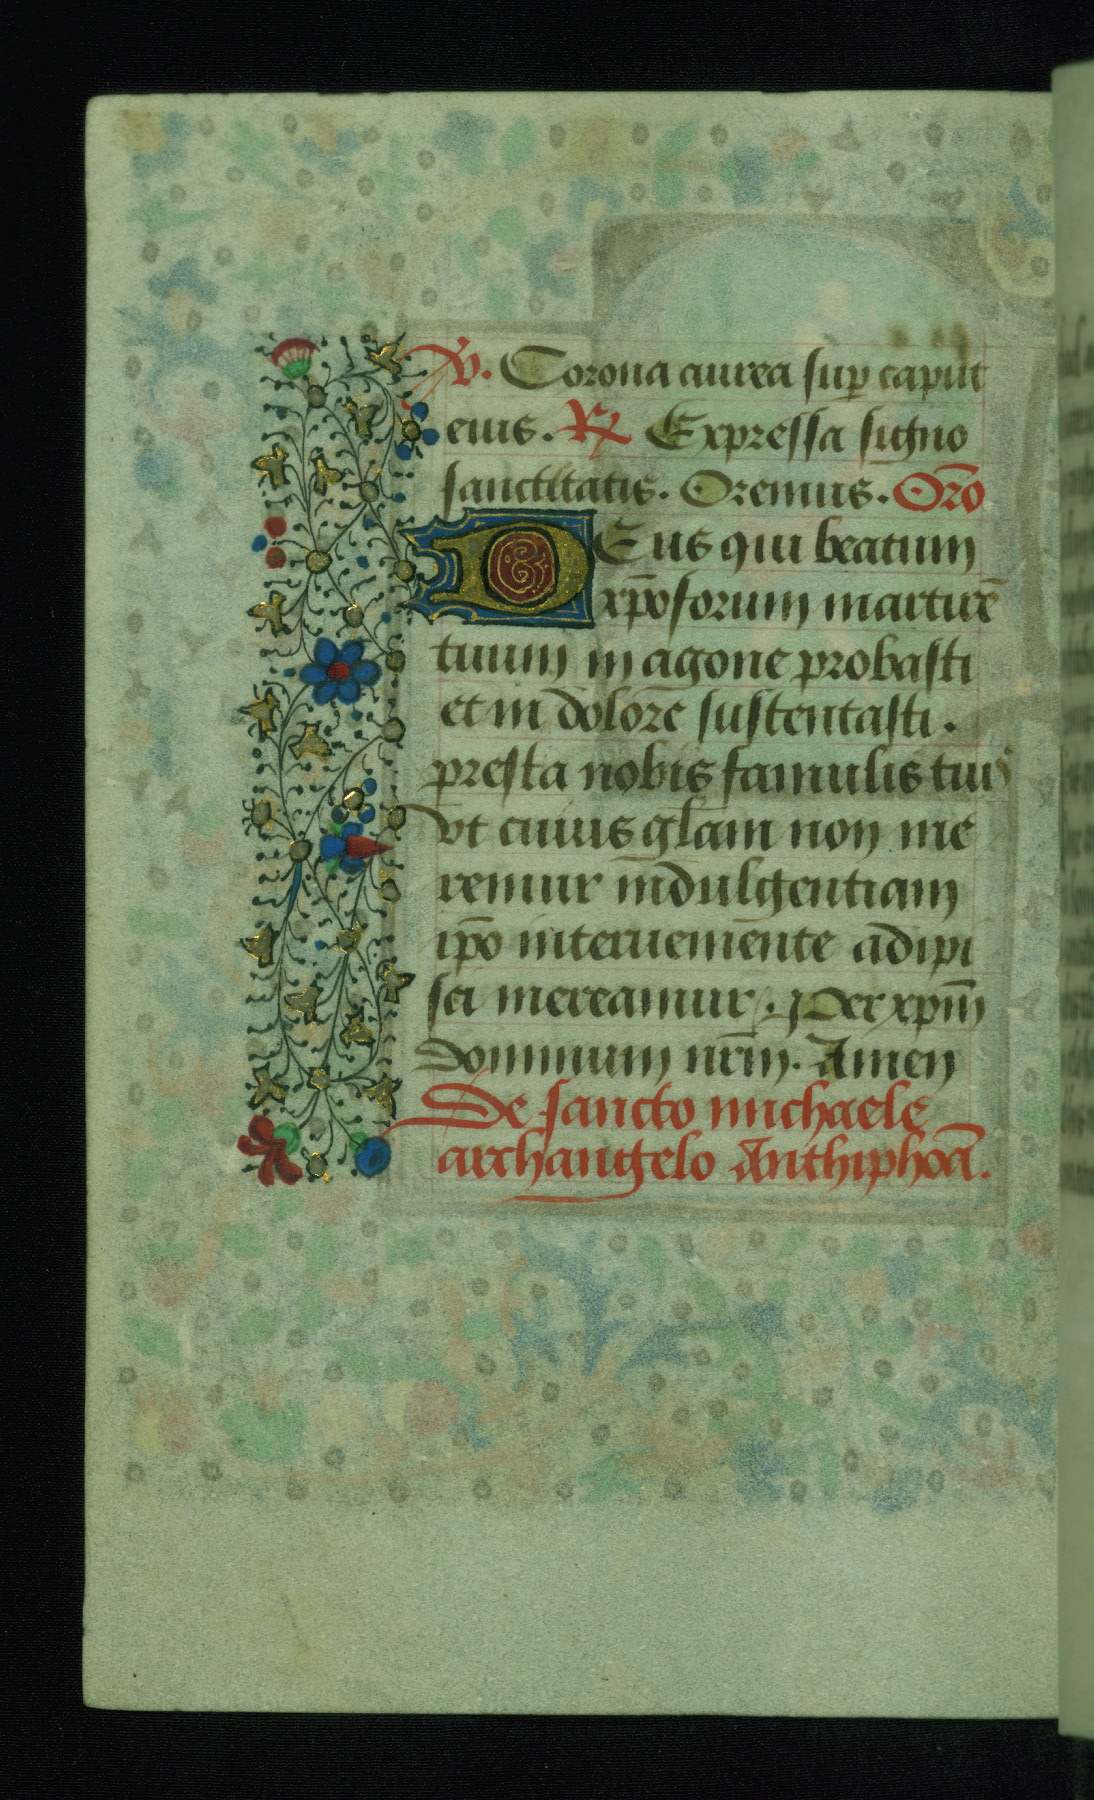 V̷. Corona aurea sup̱ caput
eius. R̷ Expressa signo
sanctitatis. Oremus. Orō
DEus qui beatum
xp̄oforum martirē
tuum in agone probasti
et in dolore sustentasti.
presta nobis famulis tuis
vt cuius gl̄am non me
remur indulgentiam
ip̄o interueniente adipi
sci mereamur. Per xp̄m
dominum nr̄m. Amen
De sancto michaele
archangelo Anthiphoā.